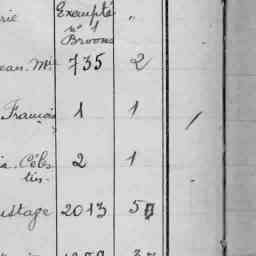 rie Exempté "
n° 1
Broons
ean. Mie 735 2
François 1 1
a. Céles 2 1
tin.
ustage 2013 5